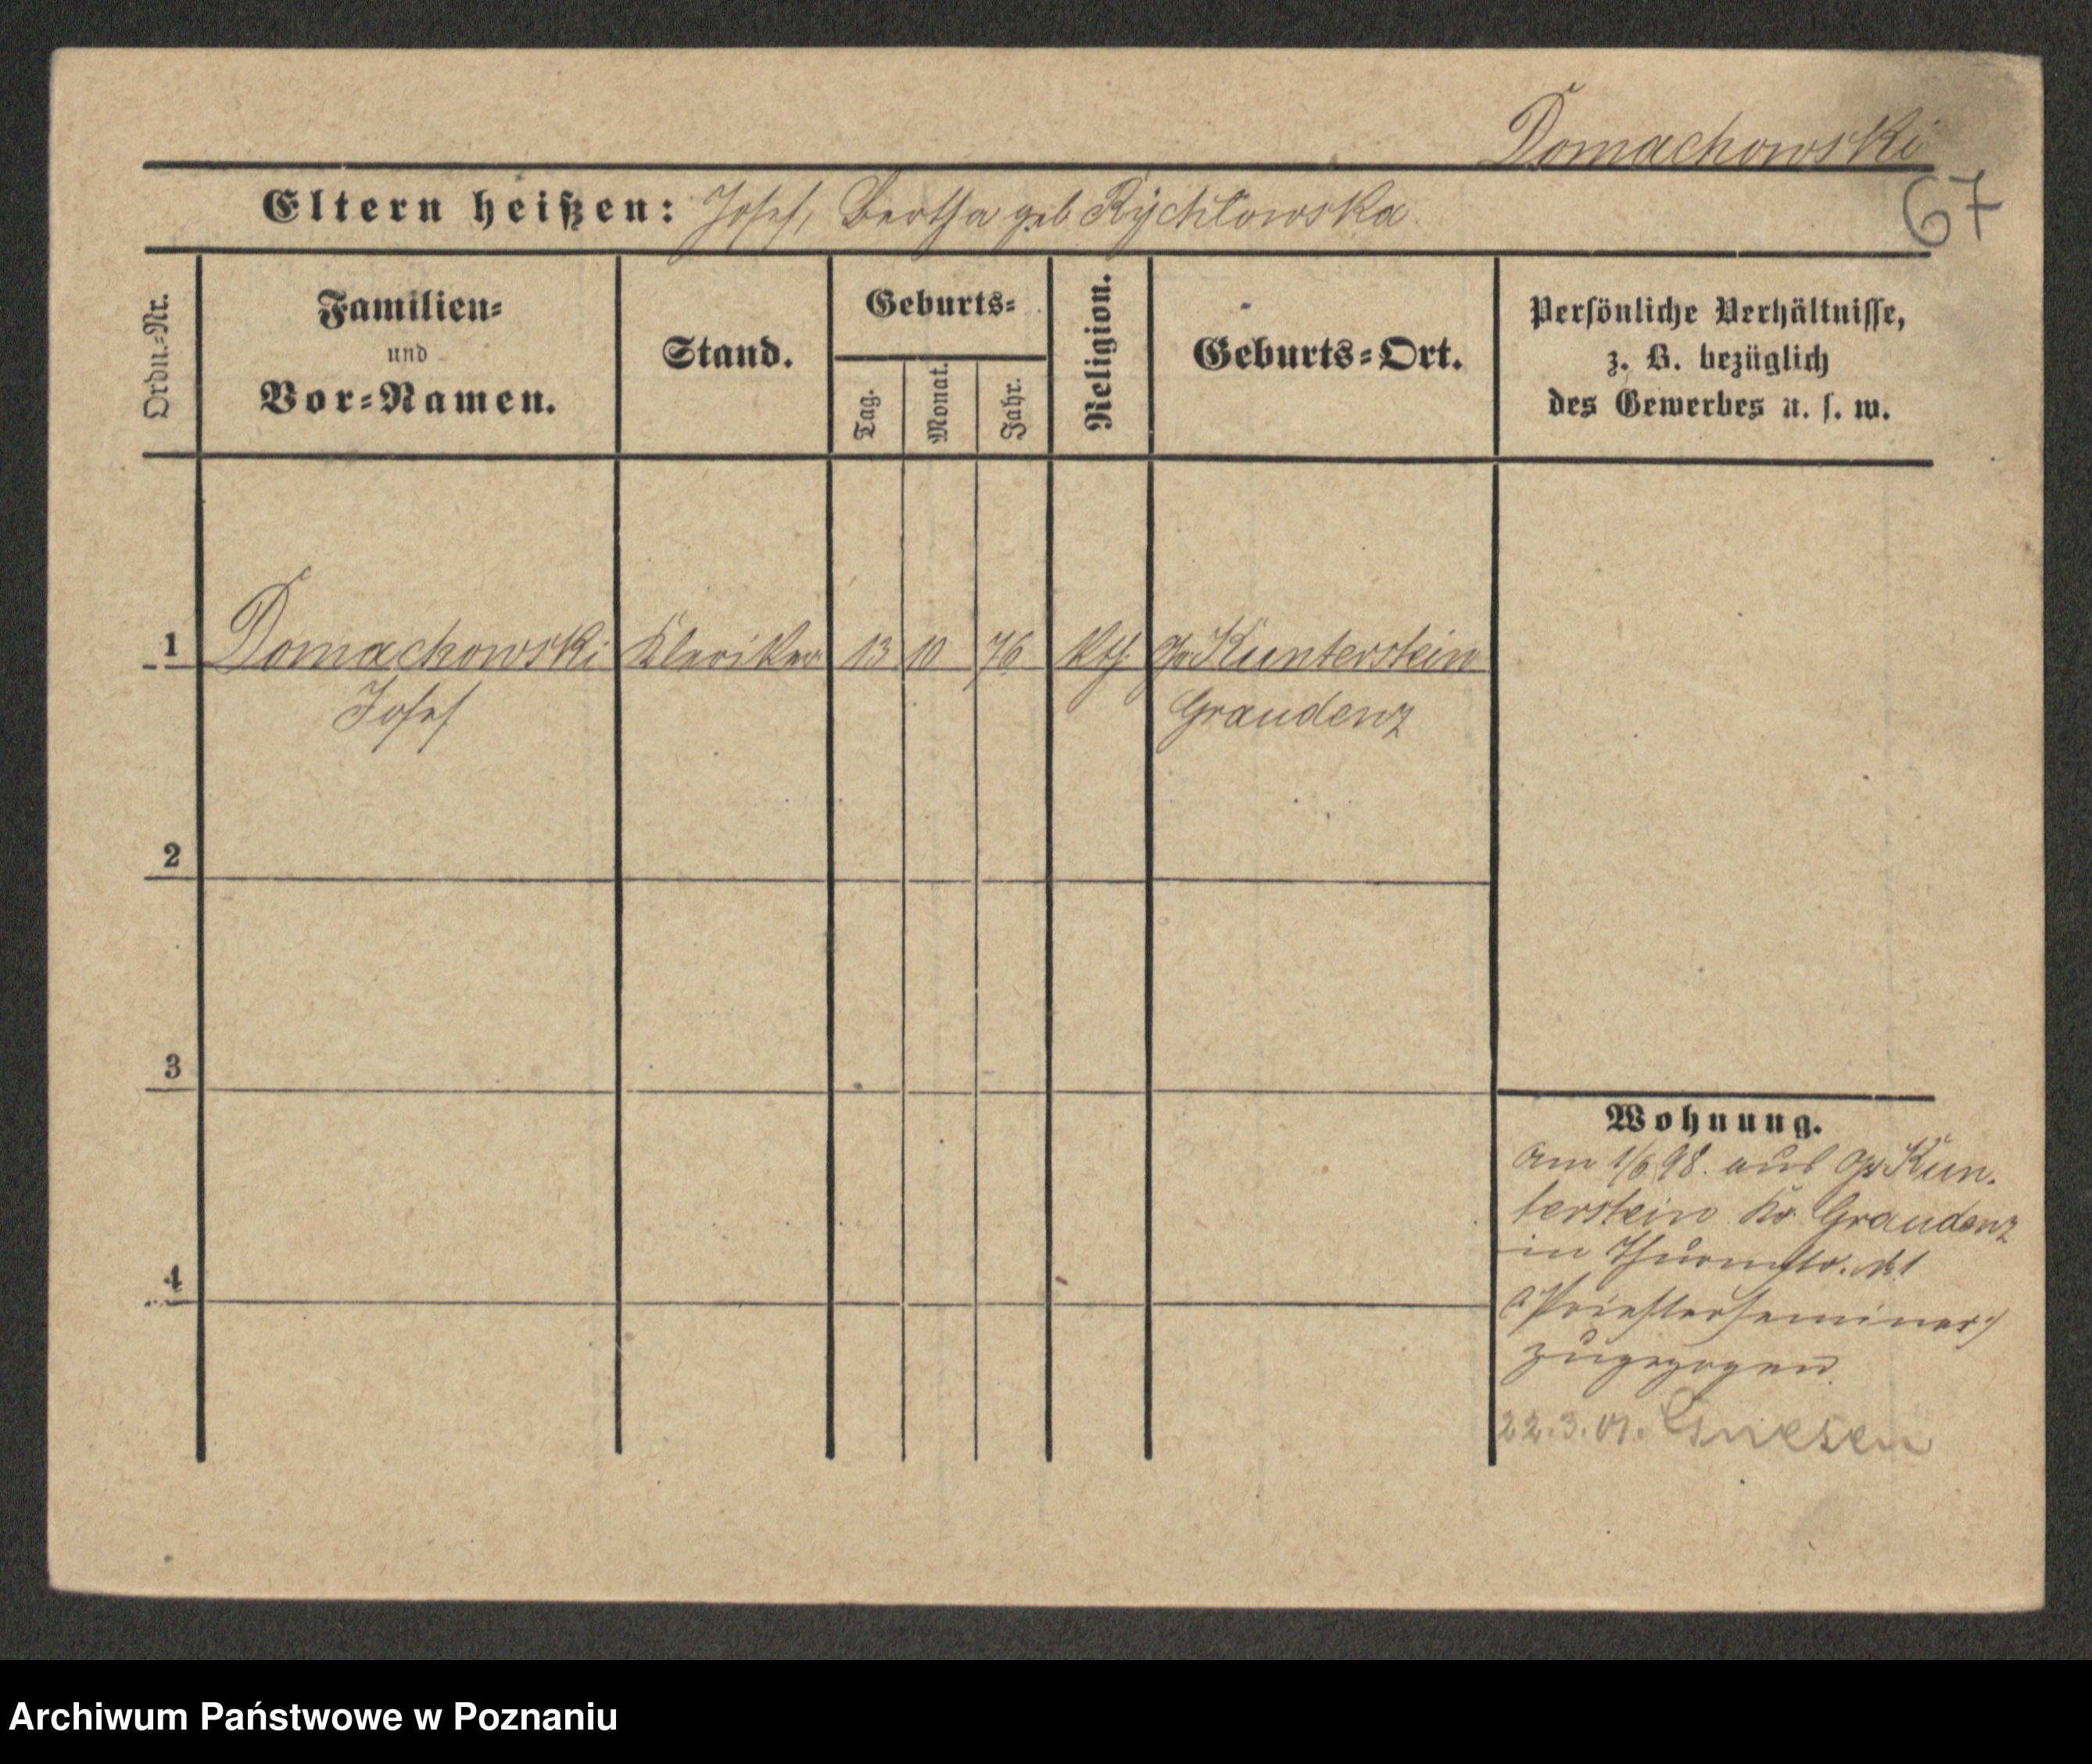 Domachowski
67
Eltern heißen: Josef, Bertha geb Rychlowska
Ordn.-Nr.
Familien-
und
Vor-Namen.
Stand.
Geburts-
Tag.
Monat.
Jahr.
Religion.
Geburts-Ort.
Persönliche Verhältnisse,
z. B. bezüglich
des Gewerbes u. s. w.
1 Domachowski Kleriker 13 10 76 kth. Gr. Kunterstein
Josef Graudenz
2
3
4
Wohnung.
Am 1/6 98. aus Gr Kun-
terstein Kr. Graudenz
in Thurmstr. № 1
(:Priesterseminar:)
zugezogen.
22.3.01. Gnesen
Archiwum Państwowe w Poznaniu